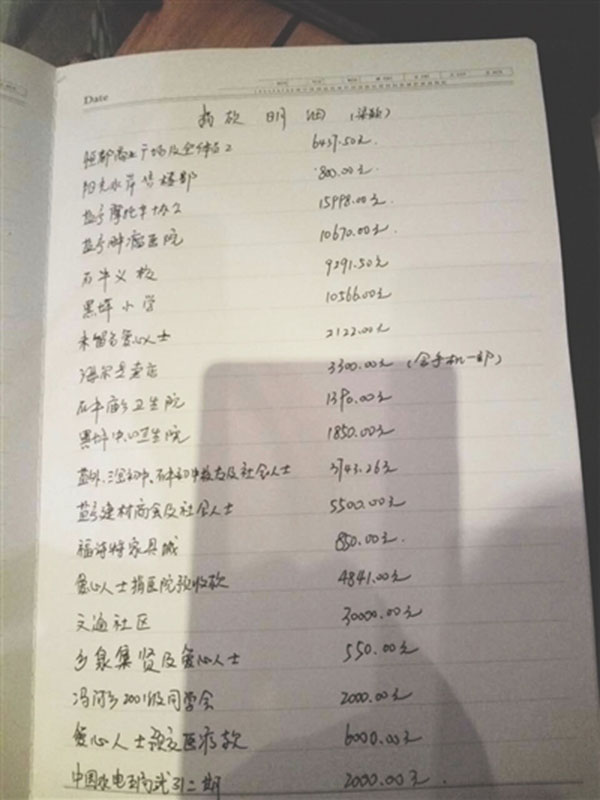 Date
捐款明细（梁毅）
恒都商业广场及全体员工 6437.50元
阳光水岸售楼部 800.00元
盐亭摩托车协会 15998.00元.
盐亭肿瘤医院 10670.00元.
石牛义校 9291.50元
黑坪小学 10566.00元
未留名爱心人士 2122.00元
海尔专卖店 3300.00元（含手机一部）
石牛庙乡卫生院 1390.00元
黑坪中心卫生院 1850.00元
盐外、三元初中、石牛初中校友及社会人士 3743.26元
盐亭建材商会及社会人士 5500.00元
福诗特家具城 850.00元.
爱心人士捐医院预收款 4841.00元
文通社区 30000.00元
乡泉集贤及爱心人士 550.00元
冯河乡2001级同学会 2000.00元
爱心人士预交医疗款 6000.00元
中国水电 二期 2000.00元.